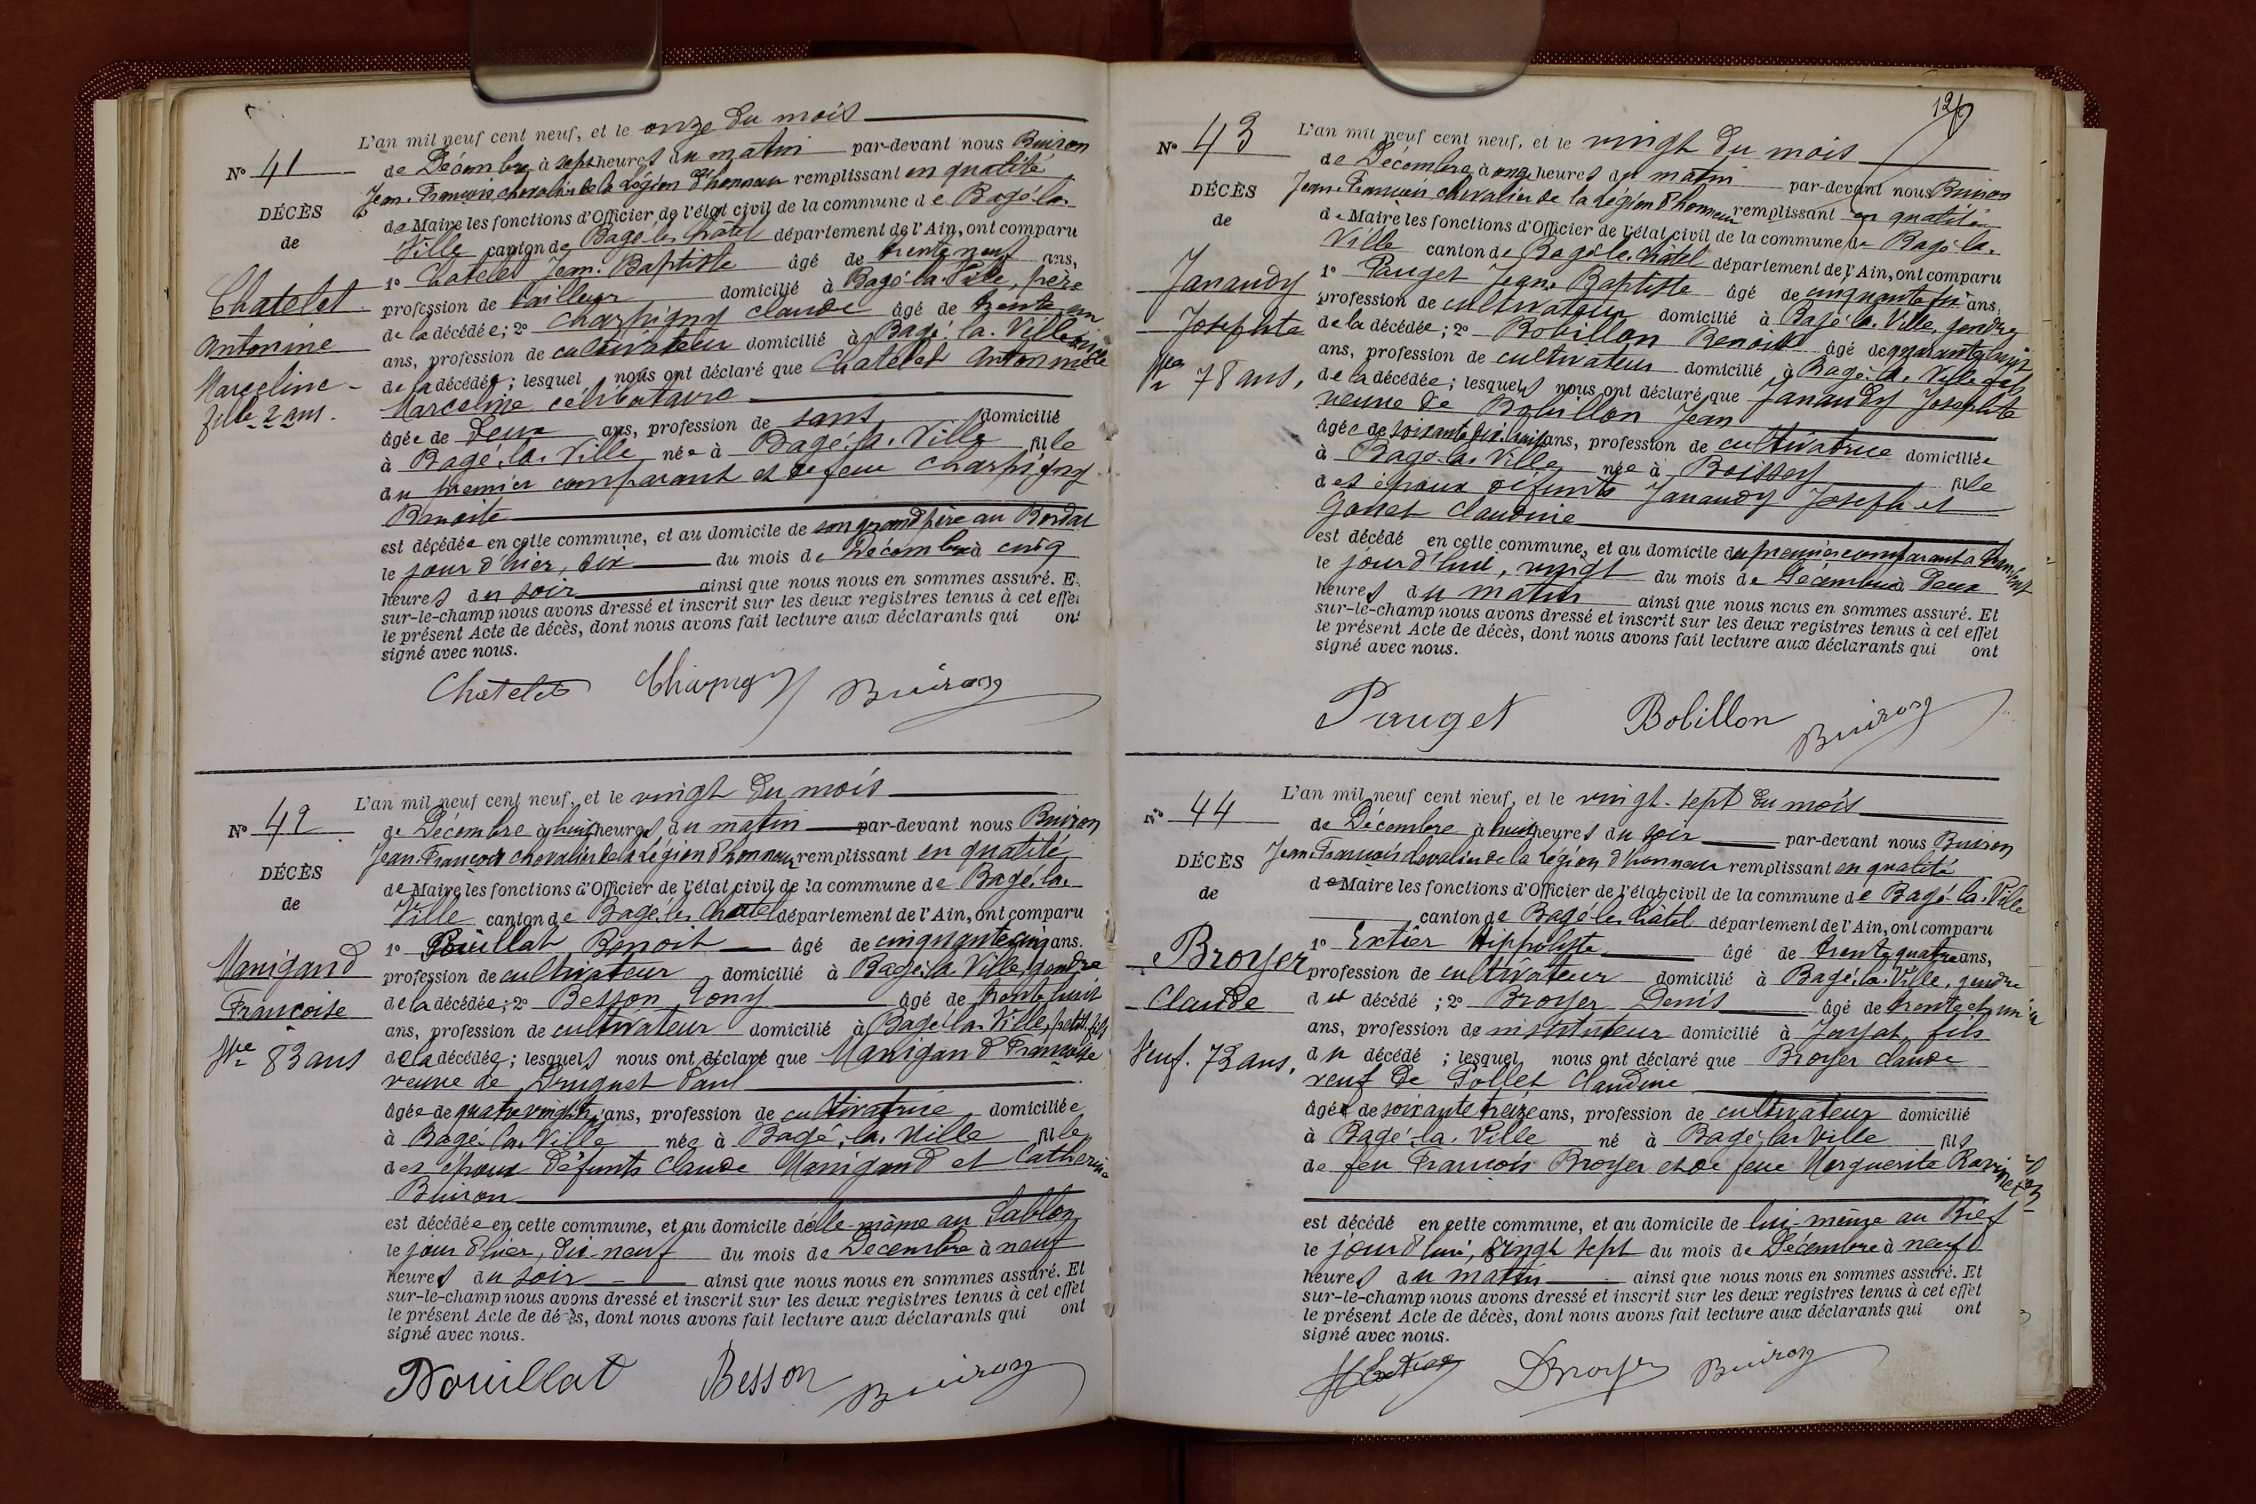 L'an mil neuf cent neuf, et le onze du mois
N° 41
de Décembre à sept heures du matin par-devant nous Buiron
Jean-François chevalier de la Légion d'honneur remplissant en qualité
DÉCÈS
de Maire les fonctions d'Officier de l'état civil de la commune de Bagé-la-
de
Ville canton de Bagé-le-Châtel département de l'Ain, ont comparu
1° Chatelet Jean-Baptiste âgé de trente neuf ans,
Chatelet
profession de tailleur domicilié à Bagé-la-Ville, père
de la décédée; 2° Charpigny Claude âgé de trente un
Antonine
ans, profession de cultivateur domicilié à Bagé-la-Ville
Marceline
de la décédée; lesquel nous ont déclaré que Chatelet Antonine
fille 2 ans.
Marceline célibataire
âgée de deux ans, profession de sans domicilié
à Bagé-la-Ville née à Bagé-la-Ville fille
du premier comparant et de feue Charpigny
Benoite
est décédée en cette commune, et au domicile de son grand père au Bordat
le jour d'hier, dix du mois de Décembre à cinq
heures du soir ainsi que nous nous en sommes assuré. Et
sur-le-champ nous avons dressé et inscrit sur les deux registres tenus à cet effet
le présent Acte de décès, dont nous avons fait lecture aux déclarants qui ont
signé avec nous.
Chatelet Charpigny Buiron
L'an mil neuf cent neuf, et le vingt du mois
N° 42
de Décembre à huit heures du matin par-devant nous Buiron
Jean-François chevalier de la Légion d'honneur remplissant en qualité
DÉCÈS
de Maire les fonctions d'Officier de l'état civil de la commune de Bagé-la-
de
Ville canton de Bagé-le-Châtel département de l'Ain, ont comparu
1° Pouillat Benoit âgé de cinquante cinq ans.
Manigand
profession de cultivateur domicilié à Bagé-la-Ville, gendre
Françoise
de la décédée; 2° Besson Tony âgé de trente huit
ans, profession de cultivateur domicilié à Bagé-la-Ville, petit-fils
Vve 83 ans
de la décédée; lesquels nous ont déclaré que Manigand Françoise
veuve de Druguet Paul
âgée de quatre vingt trois ans, profession de cultivatrice domiciliée
à Bagé-la-Ville née à Bagé-la-Ville fille
des époux défunts Claude Manigand et Catherine
Buiron
est décédée en cette commune, et au domicile d'elle-même au Sablon
le jour d'hier, dix-neuf du mois de Décembre à neuf
heures du soir ainsi que nous nous en sommes assuré. Et
sur-le-champ nous avons dressé et inscrit sur les deux registres tenus à cet effet
le présent Acte de décès, dont nous avons fait lecture aux déclarants qui ont
signé avec nous.
Pouillat Besson Buiron
L'an mil neuf cent neuf, et le vingt du mois
N° 43
de Décembre à onze heures du matin par-devant nous Buiron
Jean-François chevalier de la Légion d'honneur remplissant en qualité
DÉCÈS
de Maire les fonctions d'Officier de l'état civil de la commune de Bagé-la-
de
Ville canton de Bagé-le-Châtel département de l'Ain, ont comparu
Janaudy
1° Pauget Jean-Baptiste âgé de cinquante six ans,
profession de cultivateur domicilié à Bagé-la-Ville, gendre
Josephte
de la décédée; 2° Bobillon Benoit âgé de quarante
ans, profession de cultivateur domicilié à Bagé-la-Ville fils
Vve 78 ans,
de la décédée; lesquels nous ont déclaré que Janaudy Josephte
veuve de Bobillon Jean
âgée de soixante dix huit ans, profession de cultivatrice domiciliée
à Bagé-la-Ville née à Boissey fille
des époux défunts Janaudy Joseph et
Gonet Claudine
est décédé en cette commune, et au domicile du premier comparant à
le jour d'hui, vingt du mois de Décembre à deux
heures du matin ainsi que nous nous en sommes assuré. Et
sur-le-champ nous avons dressé et inscrit sur les deux registres tenus à cet effet
le présent Acte de décès, dont nous avons fait lecture aux déclarants qui ont
signé avec nous.
Pauget Bobillon Buiron
L'an mil neuf cent neuf, et le vingt-sept du mois
N° 44
de Décembre à huit heures du soir par-devant nous Buiron
Jean-François chevalier de la Légion d'honneur remplissant en qualité
DÉCÈS
de Maire les fonctions d'Officier de l'état civil de la commune de Bagé-la-Ville
de
canton de Bagé-le-Châtel département de l'Ain, ont comparu
Broyer
1° Extier Hippolyte âgé de trente quatre ans,
profession de cultivateur domicilié à Bagé-la-Ville, gendre
Claude
du décédé; 2° Broyer Denis âgé de trente et un
ans, profession de instituteur domicilié à Jayat, fils
Veuf. 73 ans,
du décédé; lesquel nous ont déclaré que Broyer Claude
veuf de Pollet Claudine
âgé de soixante treize ans, profession de cultivateur domicilié
à Bagé-la-Ville né à Bagé-la-Ville fils
de feu François Broyer et de feue Marguerite
est décédé en cette commune, et au domicile de lui-même au Bief
le jour d'hui, vingt sept du mois de Décembre à neuf
heures du matin ainsi que nous nous en sommes assuré. Et
sur-le-champ nous avons dressé et inscrit sur les deux registres tenus à cet effet
le présent Acte de décès, dont nous avons fait lecture aux déclarants qui ont
signé avec nous.
Broyer Buiron